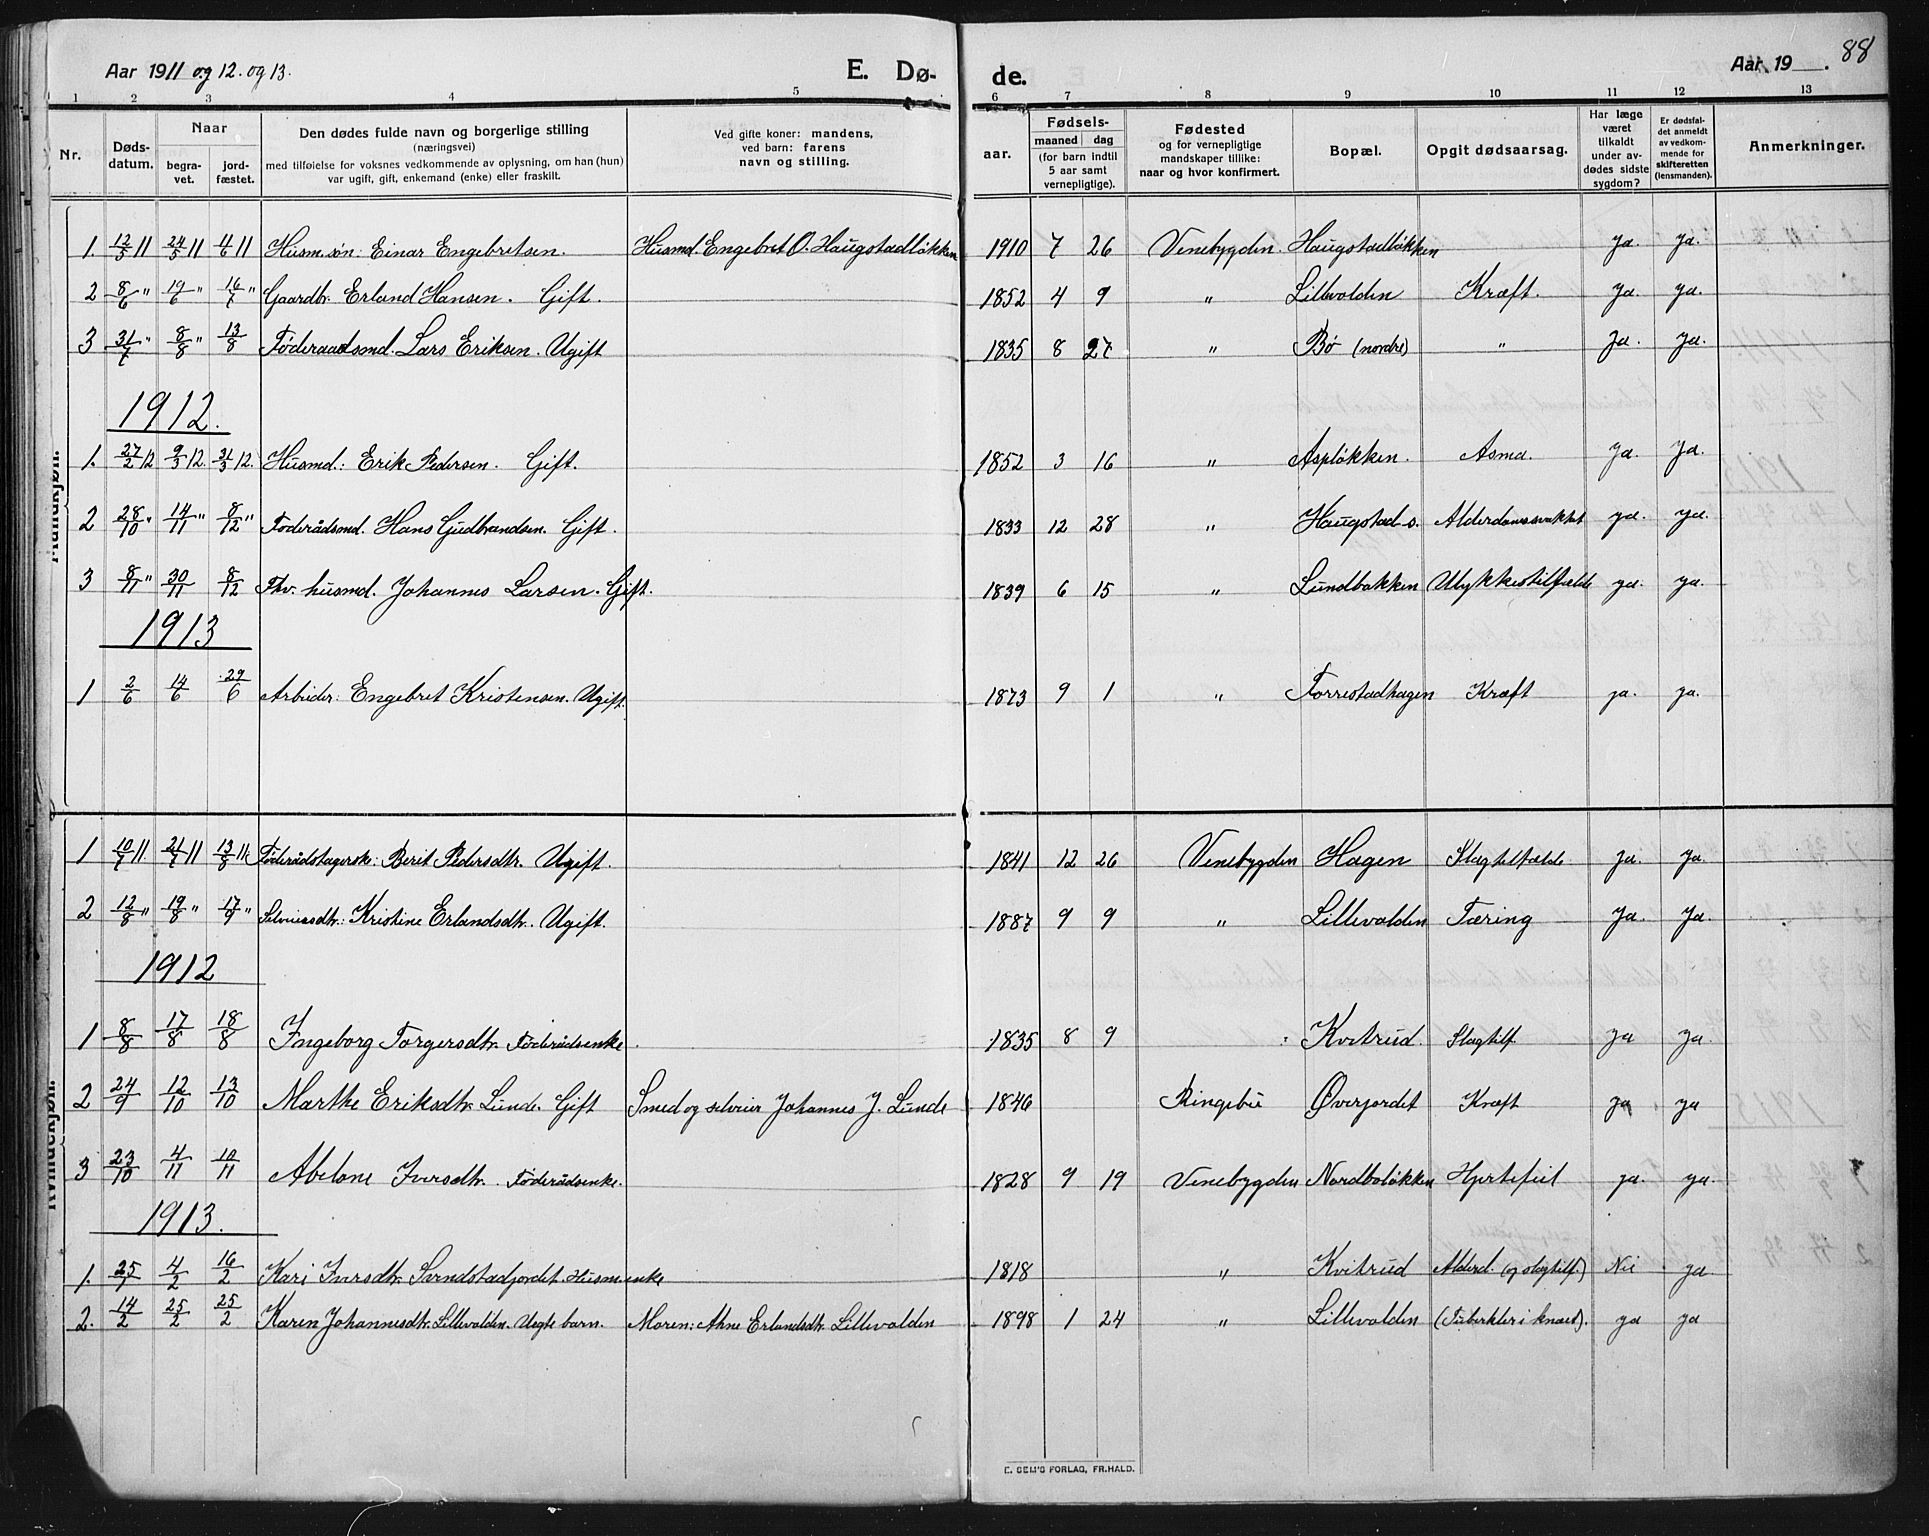 Aar 1911 og 12. og 13.
E. Dø-
de.
Aar 19 .
88
1 2 3 4 5 6 7 8 9 10 11 12 13
Nr.
Døds-
datum.
Naar
begra-
vet.
jord-
fæstet.
Den dødes fulde navn og borgerlige stilling
(næringsvei)
med tilføielse for voksnes vedkommende av oplysning, om han (hun)
var ugift, gift, enkemand (enke) eller fraskilt.
Ved gifte koner: mandens,
ved barn: farens
navn og stilling.
Fødsels-
aar.
maaned dag
(for barn indtil
5 aar samt
vernepligtige).
Fødested
og for vernepligtige
mandskaper tillike:
naar og hvor konfirmert.
Bopæl.
Opgit dødsaarsag.
Har læge
været
tilkaldt
under av-
dødes sidste
sygdom?
Er dødsfal-
det anmeldt
av vedkom-
mende for
skifteretten
(lensmanden).
Anmerkninger.
Mandkjøn.
1. 12/5 11 24/5 11 4/6 11 Husm.søn: Einar Engebretsen. Husmd. Engebret O. Haugstadløkken 1910 7 26 Venebygden. Haugstadløkken ja. ja.
2 8/6 " 19/6 " 16/7 " Gaardbr. Erland Hansen. Gift. 1852 4 9 " Lillevolden Kræft. ja. ja.
3 31/7 " 8/8 " 13/8 Føderaadsmd. Lars Eriksen. Ugift 1835 8 27 " Bø (nordre) " Ja. ja.
1912.
1. 27/2 12 9/3 12. 31/3 12. Husmd.: Erik Pedersen. Gift. 1852 3 16 " Aspløkken. Asma. ja. Ja.
2 28/10 " 14/11 " 8/12 " Føderådsmd. Hans Gudbrandsen. Gift. 1833 12 28 " Haugstad s. Alderdomssvakhet ja. ja.
3 8/11 " 30/11 8/12 Fhv. husmd. Johannes Larsen. Gift. 1839 6 15 " Lundbakken Ulykkestilfælde ja. ja.
1913
1 2/6 14/6 29/6 Arbeider: Engebret Kristensen. Ugift. 1873 9 1 " Forrestadhagen Kræft ja. ja.
Kvindekjøn.
1 10/7 11. 21/7 11 13/8 11. Føderådstagersk: Berit Pedersdtr. Ugift. 1841 12 26 Venebygden Hagen Slagtilfælde ja. ja.
2 12/8 " 19/8 " 17/9 " Selveiersdtr: Kristine Erlandsdtr. Ugift. 1887 9 9 " Lillevolden Tæring Ja. Ja.
1912
1 8/8 17/8 18/8 Ingeborg Torgersdtr. Føderådsenke. 1835 8 9 " Kvitrud. Slagtilf. ja ja.
2 24/9 12/10 13/10 Marthe Eriksdtr. Lunde. Gift Smed og selveier Johannes J. Lunde 1846 Ringebu Øverjordet Kræft ja. ja
3 23/10 4/11 10/11 Abelone Iversdtr. Føderådsenke. 1828 9 19 Venebygden Nordboløkken Hjertefeil ja. ja.
1913.
1. 25/1 4/2 16/2 Kari Iversdtr. Svendstadjordet. Husmenke 1818 " Kvitrud Alderd. (og slagtilf.) Nei ja
2. 14/2 25/2 25/2 Karen Johannesdtr. Lillevolden. Uegte barn. Moren: Ahne Erlandsdtr. Lillevolden 1898 1 24 " Lillevolden (Tuberkler i knæet). ja ja
E. SEM'S FORLAG, FR.HALD.